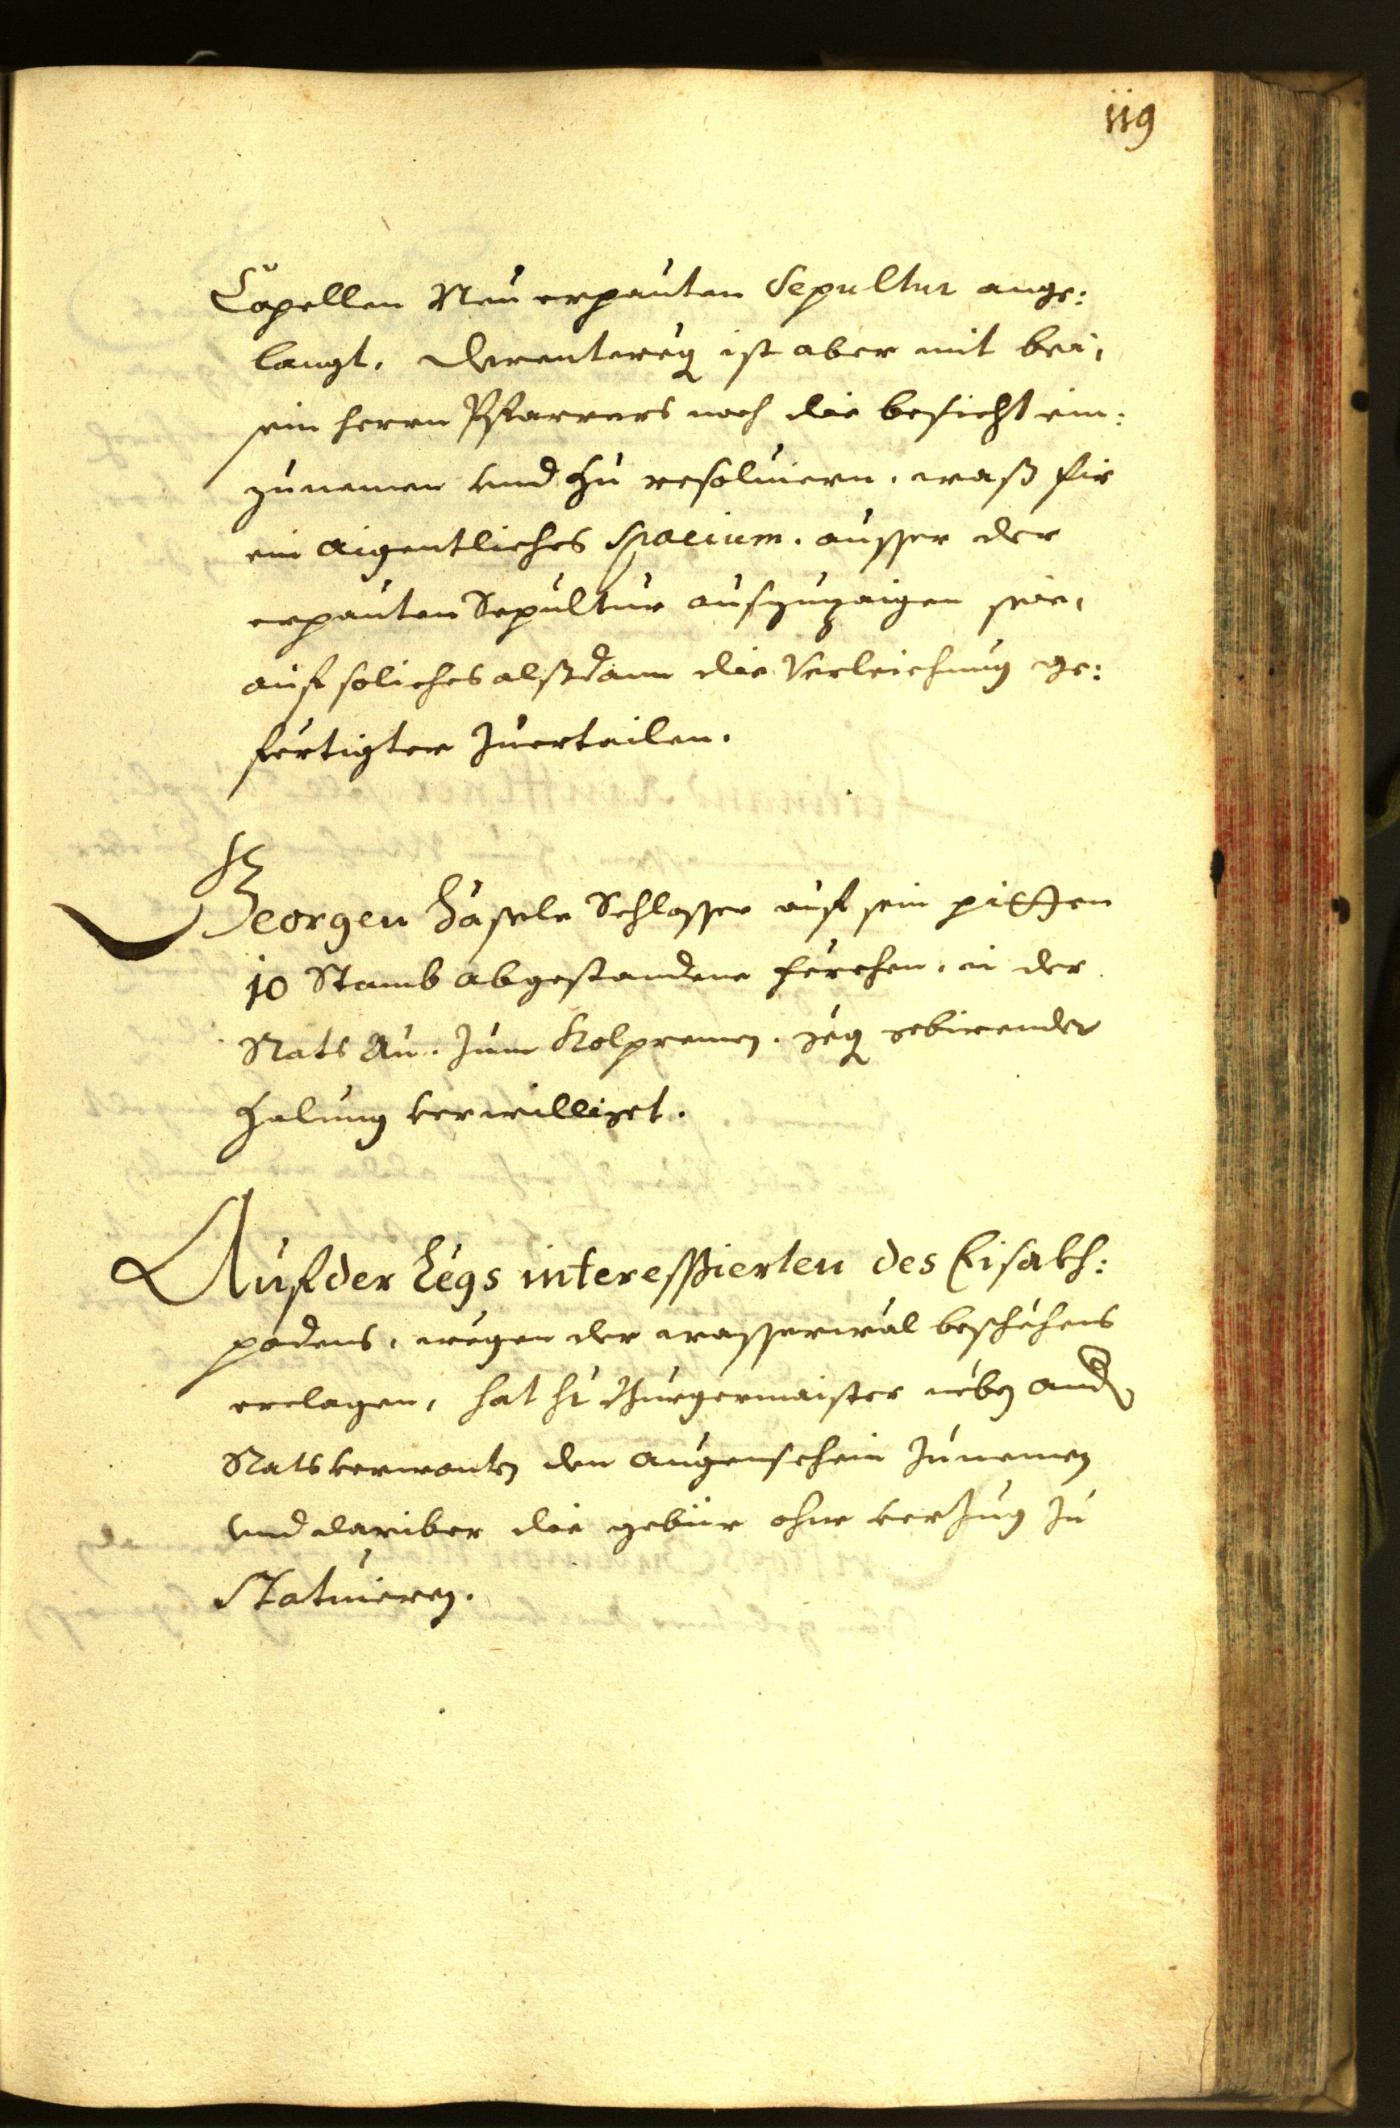 119
Capellen Neu erpauten Sepultur ange:
langt. Derentweg ist aber mit bei,
sein herrn Pfarrers noch die besicht ein:
zunemen vnd zu resoluiern. waß für
ein aigentliches Spacium. ausser der
erpauten Sepultur auszuzaigen seie,
auf soliches alßdann die Verleichung ge:
fertigter zuerteilen.
Georgen Häsele Schlosser auf sein pitten
10 Stamb abgestandene ferchen. in der
Rats Au. zum Kolprennen. geg gebirender
Zalung verwilliget.
Auf der Legs interessierten des Eisakh:
podens, wegen der wasserwäl beschehens
erclagen, hat hr Burgermaister neben andn
Ratsverwonten den augenschein zunemen
vnd dariber die gebür ohne verzug zu
Statuieren.